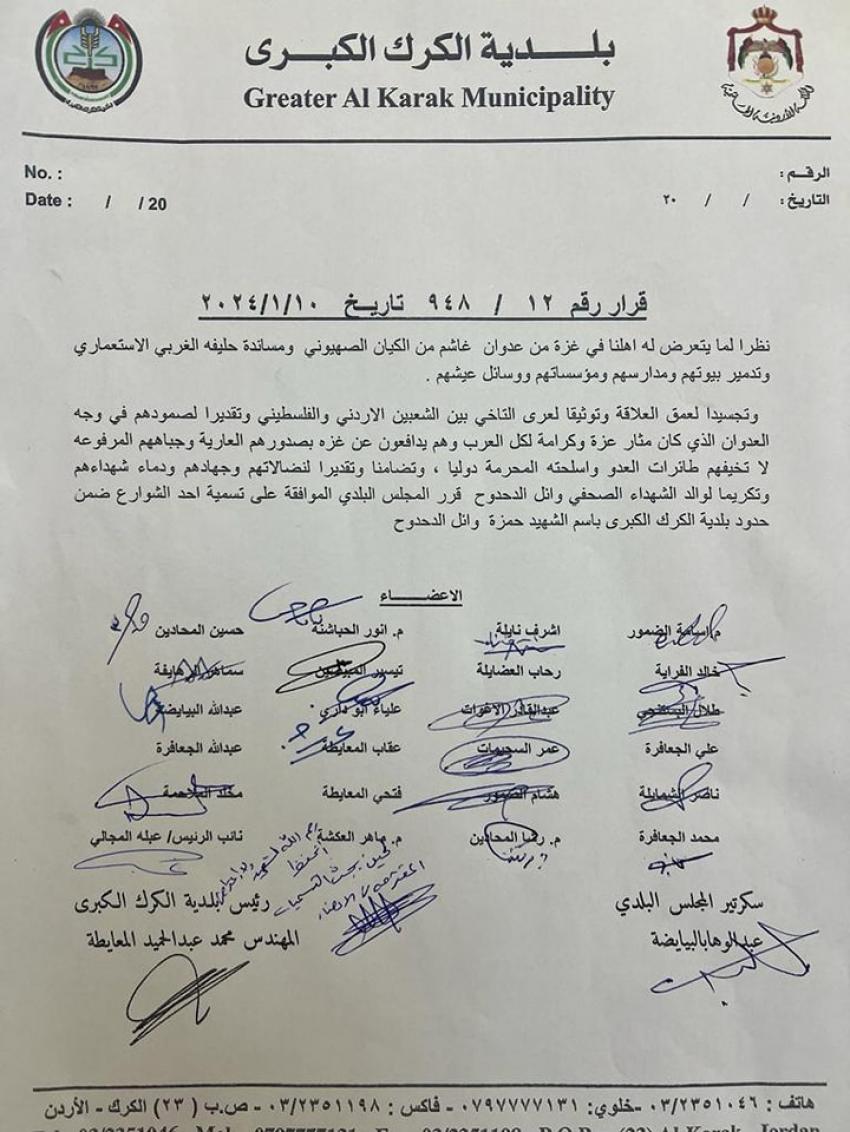 بلدية الكرك الكبرى
Greater Al Karak Municipality
No. :
الرقم :
Date :    /    / 20
التاريخ :    /    /    ٢٠
قرار رقم ١٢ / ٩٤٨ تاريخ ٢٠٢٤/١/١٠
نظرا لما يتعرض له اهلنا في غزة من عدوان غاشم من الكيان الصهيوني ومساندة حليفه الغربي الاستعماري
وتدمير بيوتهم ومدارسهم ومؤسساتهم ووسائل عيشهم .
وتجسيدا لعمق العلاقة وتوثيقا لعرى التاخي بين الشعبين الاردني والفلسطيني وتقديرا لصمودهم في وجه
العدوان الذي كان مثار عزة وكرامة لكل العرب وهم يدافعون عن غزه بصدورهم العارية وجباههم المرفوعه
لا تخيفهم طائرات العدو واسلحته المحرمة دوليا ، وتضامنا وتقديرا لنضالاتهم وجهادهم ودماء شهداءهم
وتكريما لوالد الشهداء الصحفي وائل الدحدوح قرر المجلس البلدي الموافقة على تسمية احد الشوارع ضمن
حدود بلدية الكرك الكبرى باسم الشهيد حمزة وائل الدحدوح
الاعضــاء
م.اسامة الضمور اشرف نايلة م. انور الحباشنة حسين المحادين
خالد الفراية رحاب العضايلة تيسير
طلال عبدالقادر الاغوات علياء ابو داري عبدالله البيايضة
علي الجعافرة عمر السحيمات عقاب المعايطة عبدالله الجعافرة
ناصر الشمايلة هشام الضمور فتحي المعايطة مخلد الملاحمة
محمد الجعافرة م. رضا المحادين م. ماهر العكشة نائب الرئيس/ عبله المجالي
سكرتير المجلس البلدي
رئيس بلدية الكرك الكبرى
عبدالوهاب البيايضة
المهندس محمد عبدالحميد المعايطة
هاتف : ٠٣/٢٣٥١٠٤٦ -خلوي: ٠٧٩٧٧٧٧١٣١ - فاكس : ٠٣/٢٣٥١١٩٨ - ص.ب ( ٢٣ ) الكرك - الأردن